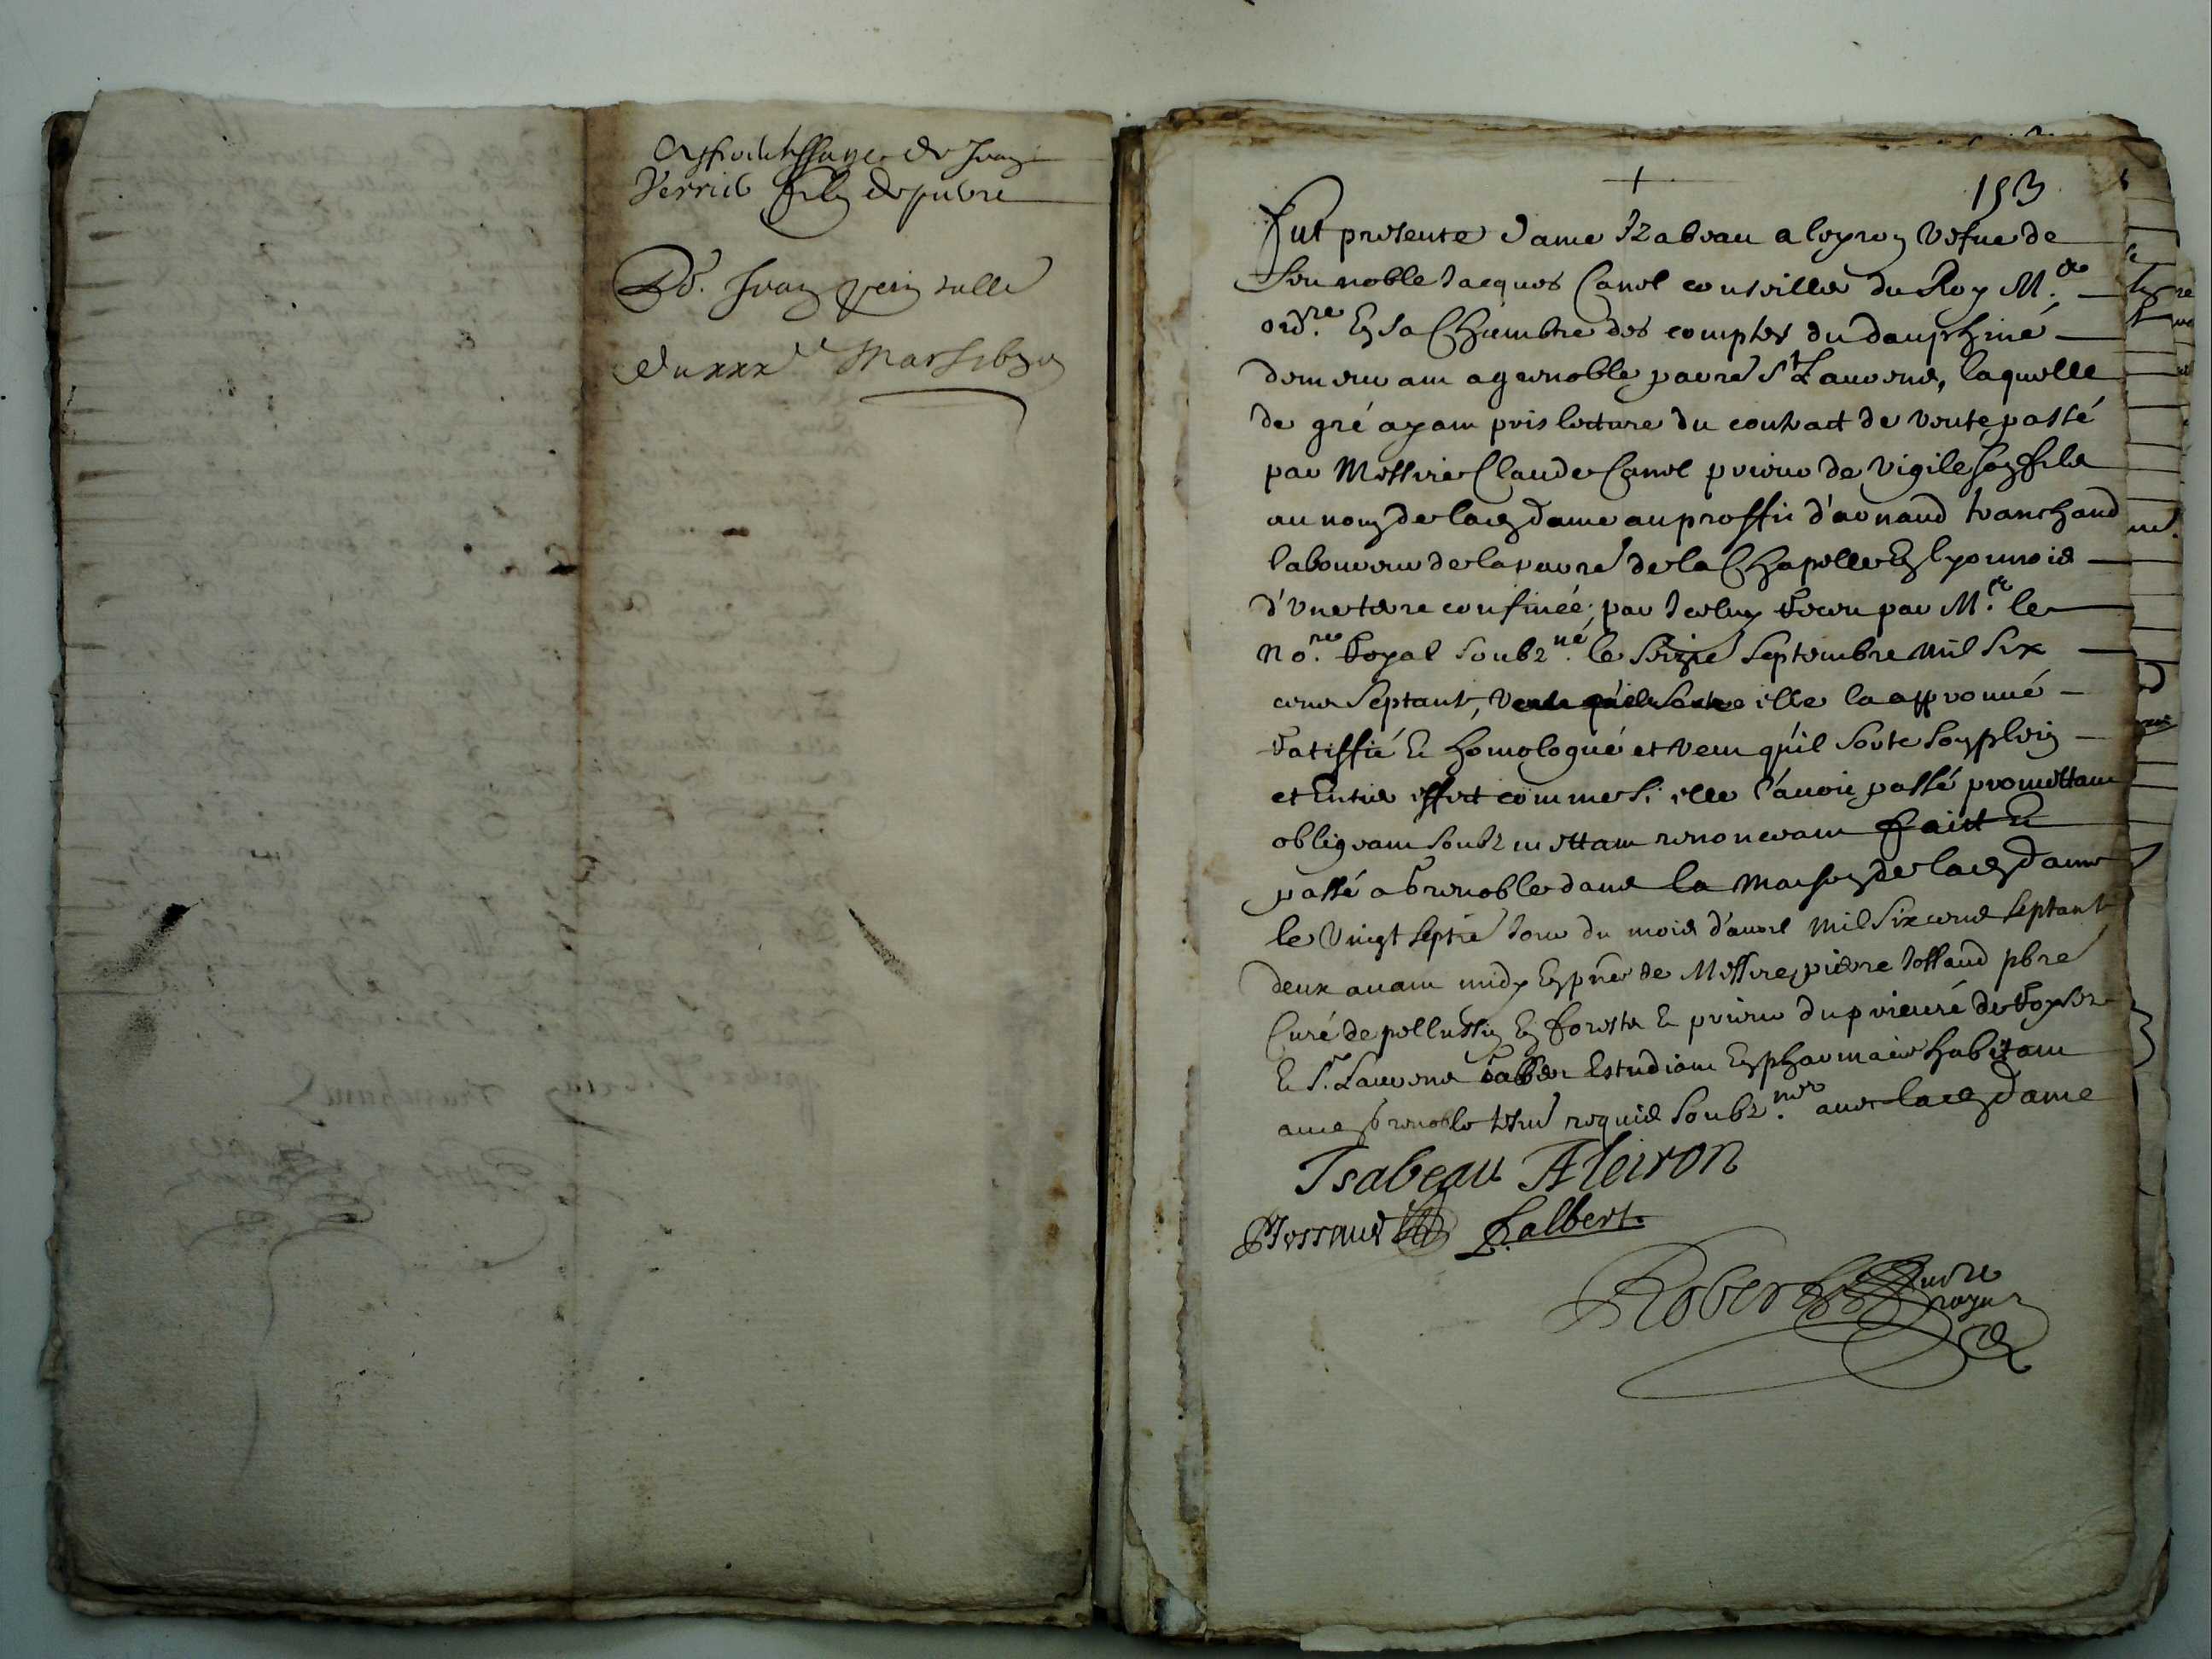 de Jean
Verrier fils de pierre
Do. Jean
du xxx Mars
153
Fut presente dame Izabeau aleyron vefue de
feu noble Jacques Canel conseiller du Roy M.re
ord.re En sa Chambre des comptes du dauphiné
demeurant a grenoble parre St Laurens, laquelle
de gré ayant pris lecture du contract de vente passé
par Messire Claude Canel prieur de vigile son fils
au nom de lad dame au proffit d'arnaud tranchand
laboureur de la parre de la Chapelle En lyonnois
d'vne terre confinée par Iceluy receu par M.e le
no.re Royal soubz.né le seizie septembre mil six
cens septante, elle la approuué
ratiffié Et homologué et veut qu'il sorte son plein
et Entier effect comme si elle l'auoit passé promettant
obligeant soubzmettant renonceant faict Et
passé a Grenoble dans la maison de lad dame
le vingt septie jour du mois d'auril mil six cens septante
deux auant midy En pnce de Messire pierre Jossaud pbre
Curé de pellussin En forests Et prieur du prieuré de
Et Sr. Laurens Estudiant En pharmacie habitant
aud Grenoble tesms requis soubz.nes auec lad dame
Isabeau Aleiron
PJossaud L. albert.
Robert no.re
royal